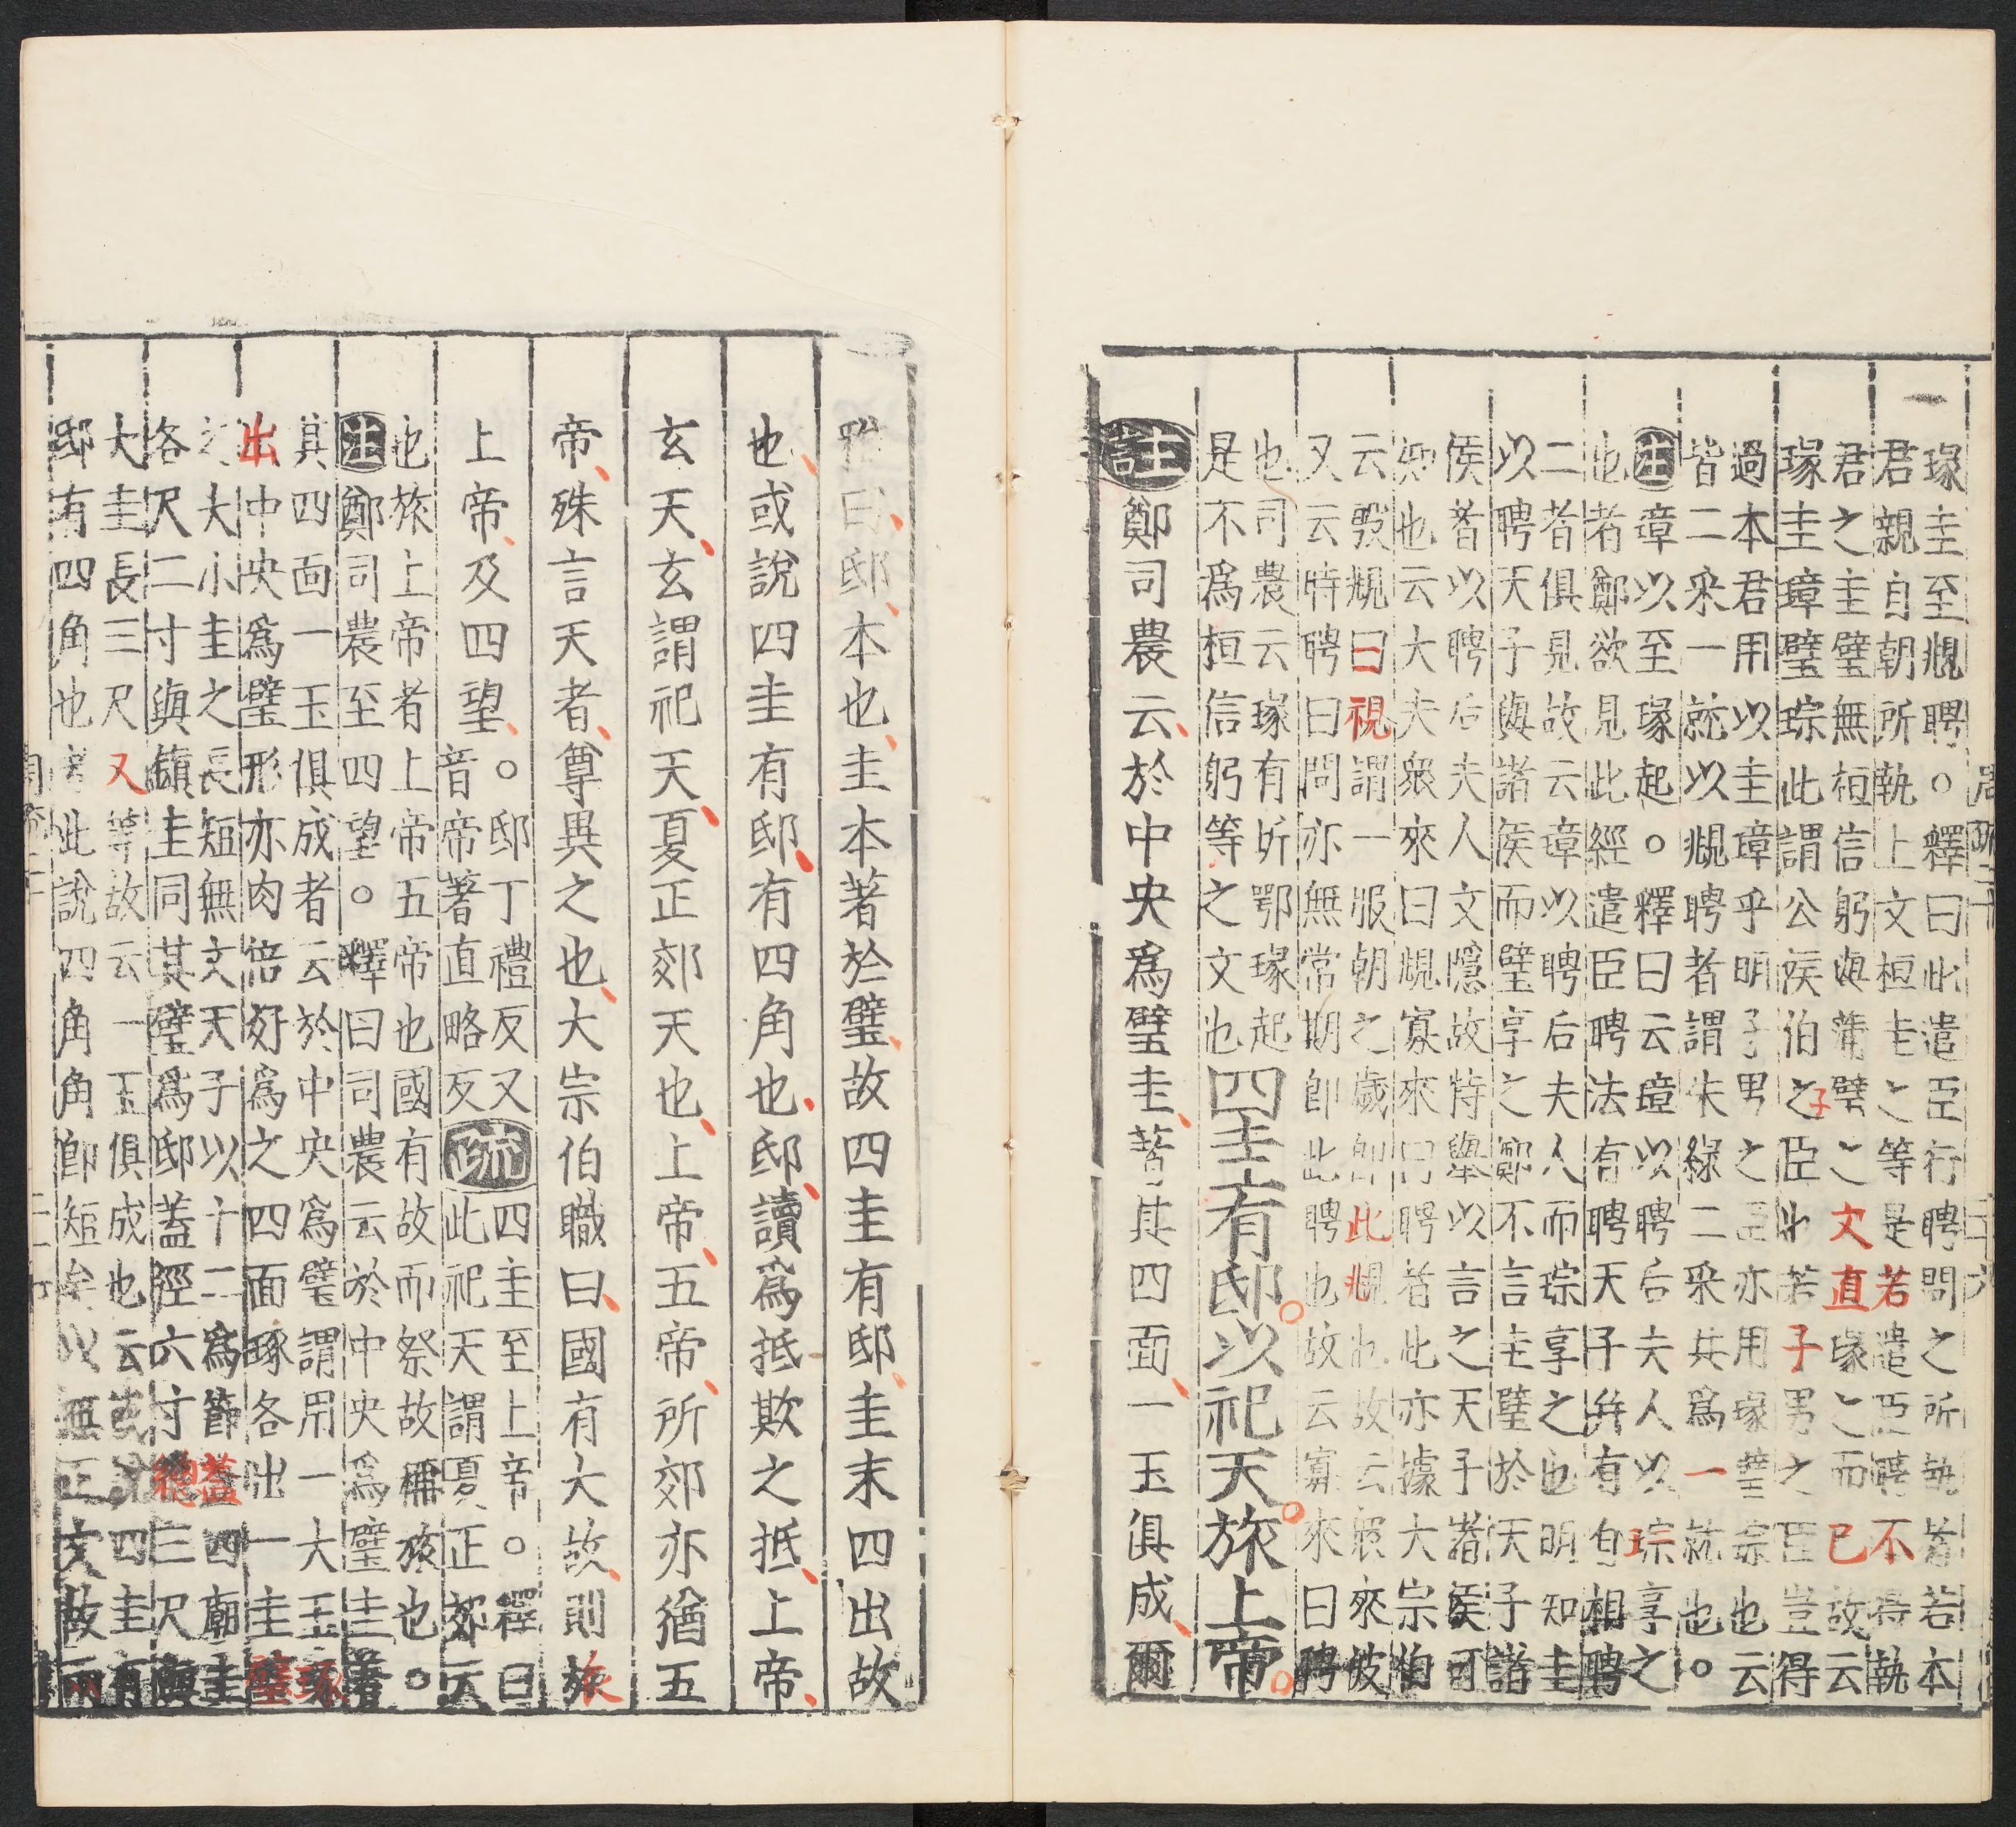 瑑圭至覜聘○釋曰此遣臣行聘問之所執者若本
君親自朝所執上文桓圭之等是若遣臣聘不得執
君之圭璧無桓信躬與蒲璧之文直瑑之而已故云
瑑圭璋璧琮此謂公侯伯之臣也若子男之臣豈得
過本君用以圭璋乎明子男之臣亦用瑑璧琮也云
皆二采一就以覜聘者謂朱綠二采共爲一就也○
註璋以至瑑起○釋曰云璋以聘后夫人以琮享之
也者鄭欲見此經遣臣聘法有聘天子幷有自相聘
二者俱見故云璋以聘后夫人而琮享之也明知圭
以聘天子與諸侯而璧享之鄭不言圭璧於天子諸
侯者以聘后夫人文隱故特舉以言之天子諸侯可
知也云大夫衆來曰覜寡來曰聘者此亦據大宗伯
云殷覜曰視謂一服朝之歲卽此覜也故云衆來彼
又云時聘曰問亦無常期卽此聘也故云寡來曰聘
也司農云瑑有圻鄂瑑起
是不爲桓信躬等之文也四圭有邸以祀天旅上帝
註鄭司農云於中央爲璧圭著其四面一玉俱成爾
雅曰邸本也圭本著於璧故四圭有邸圭末四出故
也或說四圭有邸有四角也邸讀爲抵欺之抵上帝
玄天玄謂祀天夏正郊天也上帝五帝所郊亦猶五
帝殊言天者尊異之也大宗伯職曰國有大故則旅
上帝及四望○邸丁禮反又
音帝著直略反疏四圭至上帝○釋曰
此祀天謂夏正郊天
也旅上帝者上帝五帝也國有故而祭故稱旅也○
註鄭司農至四望○釋曰司農云於中央爲璧圭著
其四面一玉俱成者云於中央爲璧謂用一大玉琢
出中央爲璧形亦肉倍好爲之四面琢各出一圭璧
之大小圭之長短無文天子以十二爲節蓋四廟圭
各尺二寸與鎮圭同其璧爲邸蓋徑六寸總三尺與
大圭長三尺又等故云一玉俱成也云或說四圭有
邸有四角也者此說四角角卽短矣以無正文故兩